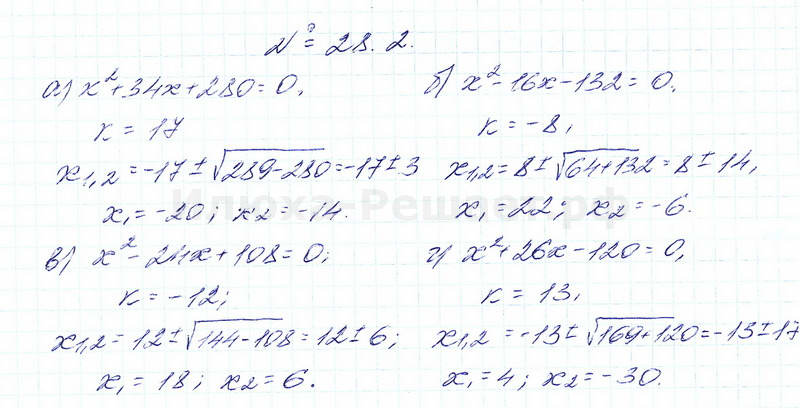 № 28.2.
а) x²+34x+280=0,
к = 17
x₁,₂ = -17 ± √(289-280) = -17 ± 3
x₁ = -20; x₂ = -14.
б) x²-16x-132=0,
к = -8,
x₁,₂ = 8 ± √(64+132) = 8 ± 14,
x₁ = 22; x₂ = -6.
в) x²-24x+108=0;
к = -12;
x₁,₂ = 12 ± √(144-108) = 12 ± 6;
x₁ = 18; x₂ = 6.
г) x²+26x-120=0,
к = 13,
x₁,₂ = -13 ± √(169+120) = -13 ± 17
x₁ = 4; x₂ = -30.
Илюха-Решает.рф